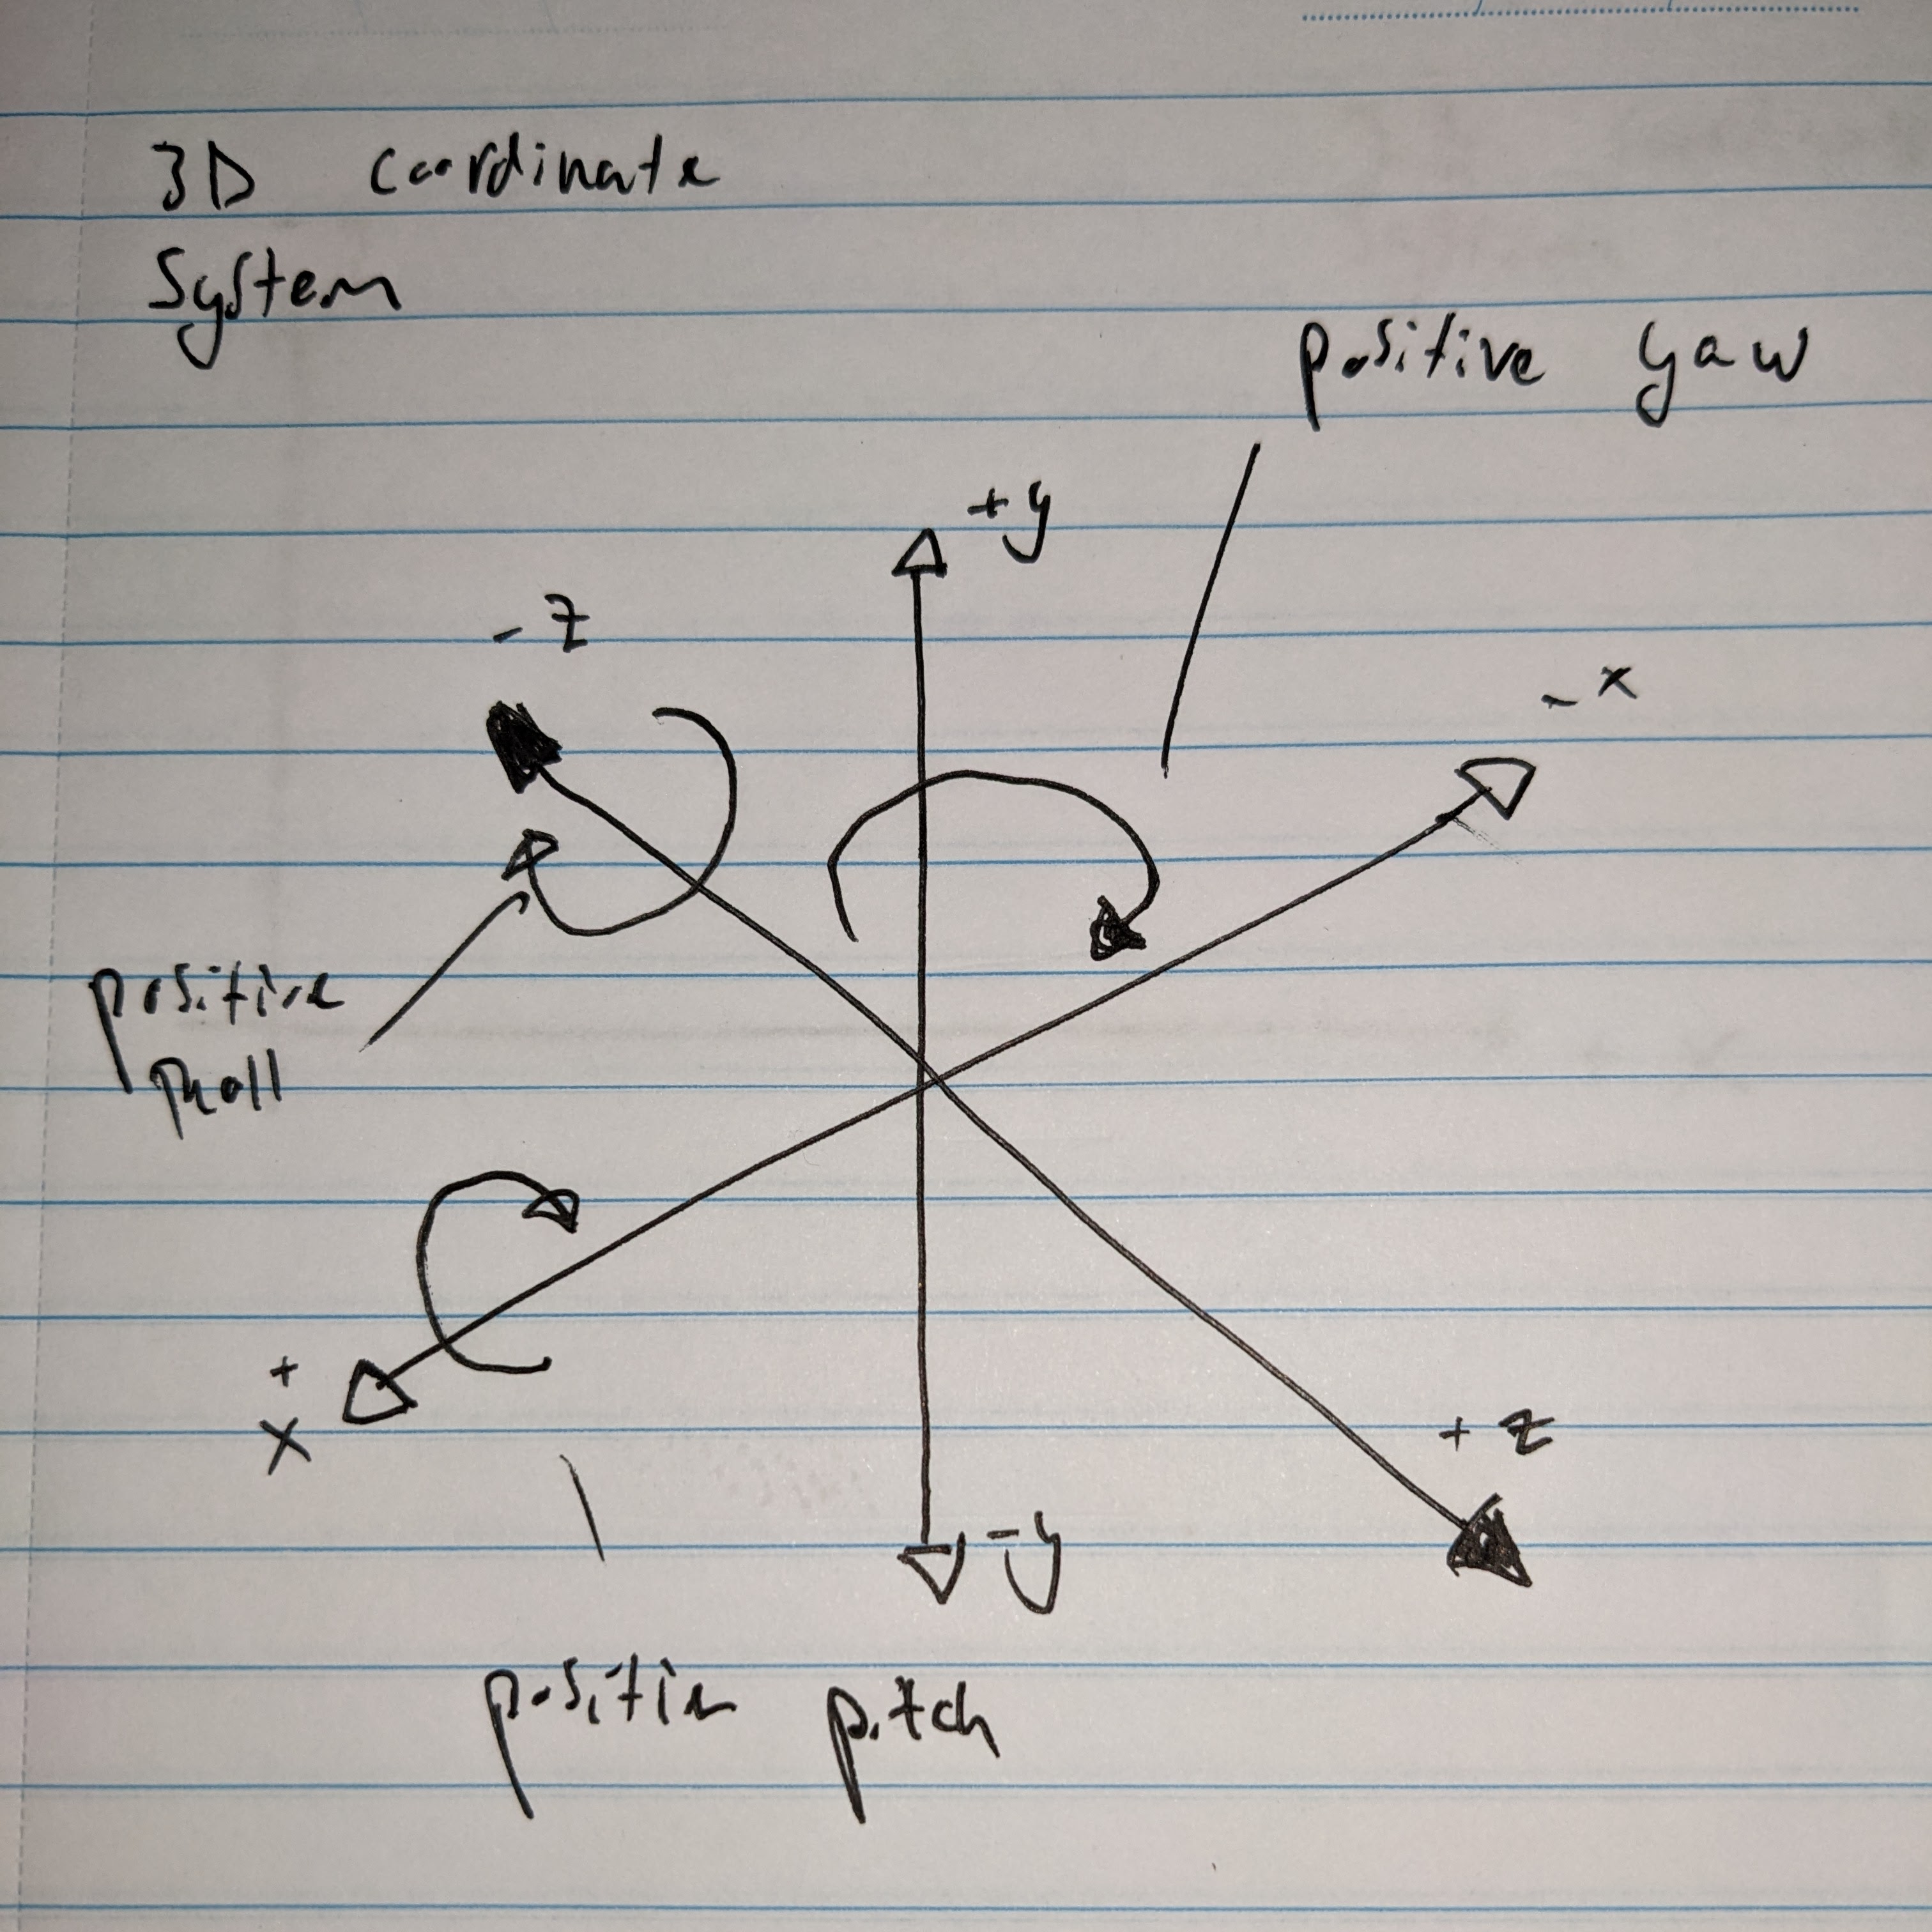 3D coordinate
System
positive yaw
+y
- z
- x
positive
roll
+
x
+ z
-y
positive pitch